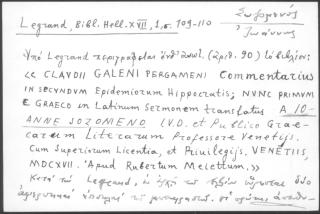 Legrand, Bibl. Hell. XVII, 1, σ. 109-110
Σωζομενός
Ἰωάννης
Ὑπὸ Legrand περιγράφεται (ἀριθ. 90) τὸ βιβλίον:
«CLAVDII GALENI PERGAMENI Commentarius
IN SECVNDVM Epidemiorum Hippocratis; NVNC PRIMVM
E GRAECO IN Latinum Sermonem translatus A IO-
ANNE SOZOMENO I.V.D. et Publico Grae-
carum Literarum Professore Venetijs,
Cum Superiorum Licentia, et Priuilegijs, VENETIIS,
MDCXVII. Apud Robertum Meiettum.»
Κατὰ τὸν Legrand, ἐν ἀρχῇ τοῦ βιβλίου δύο